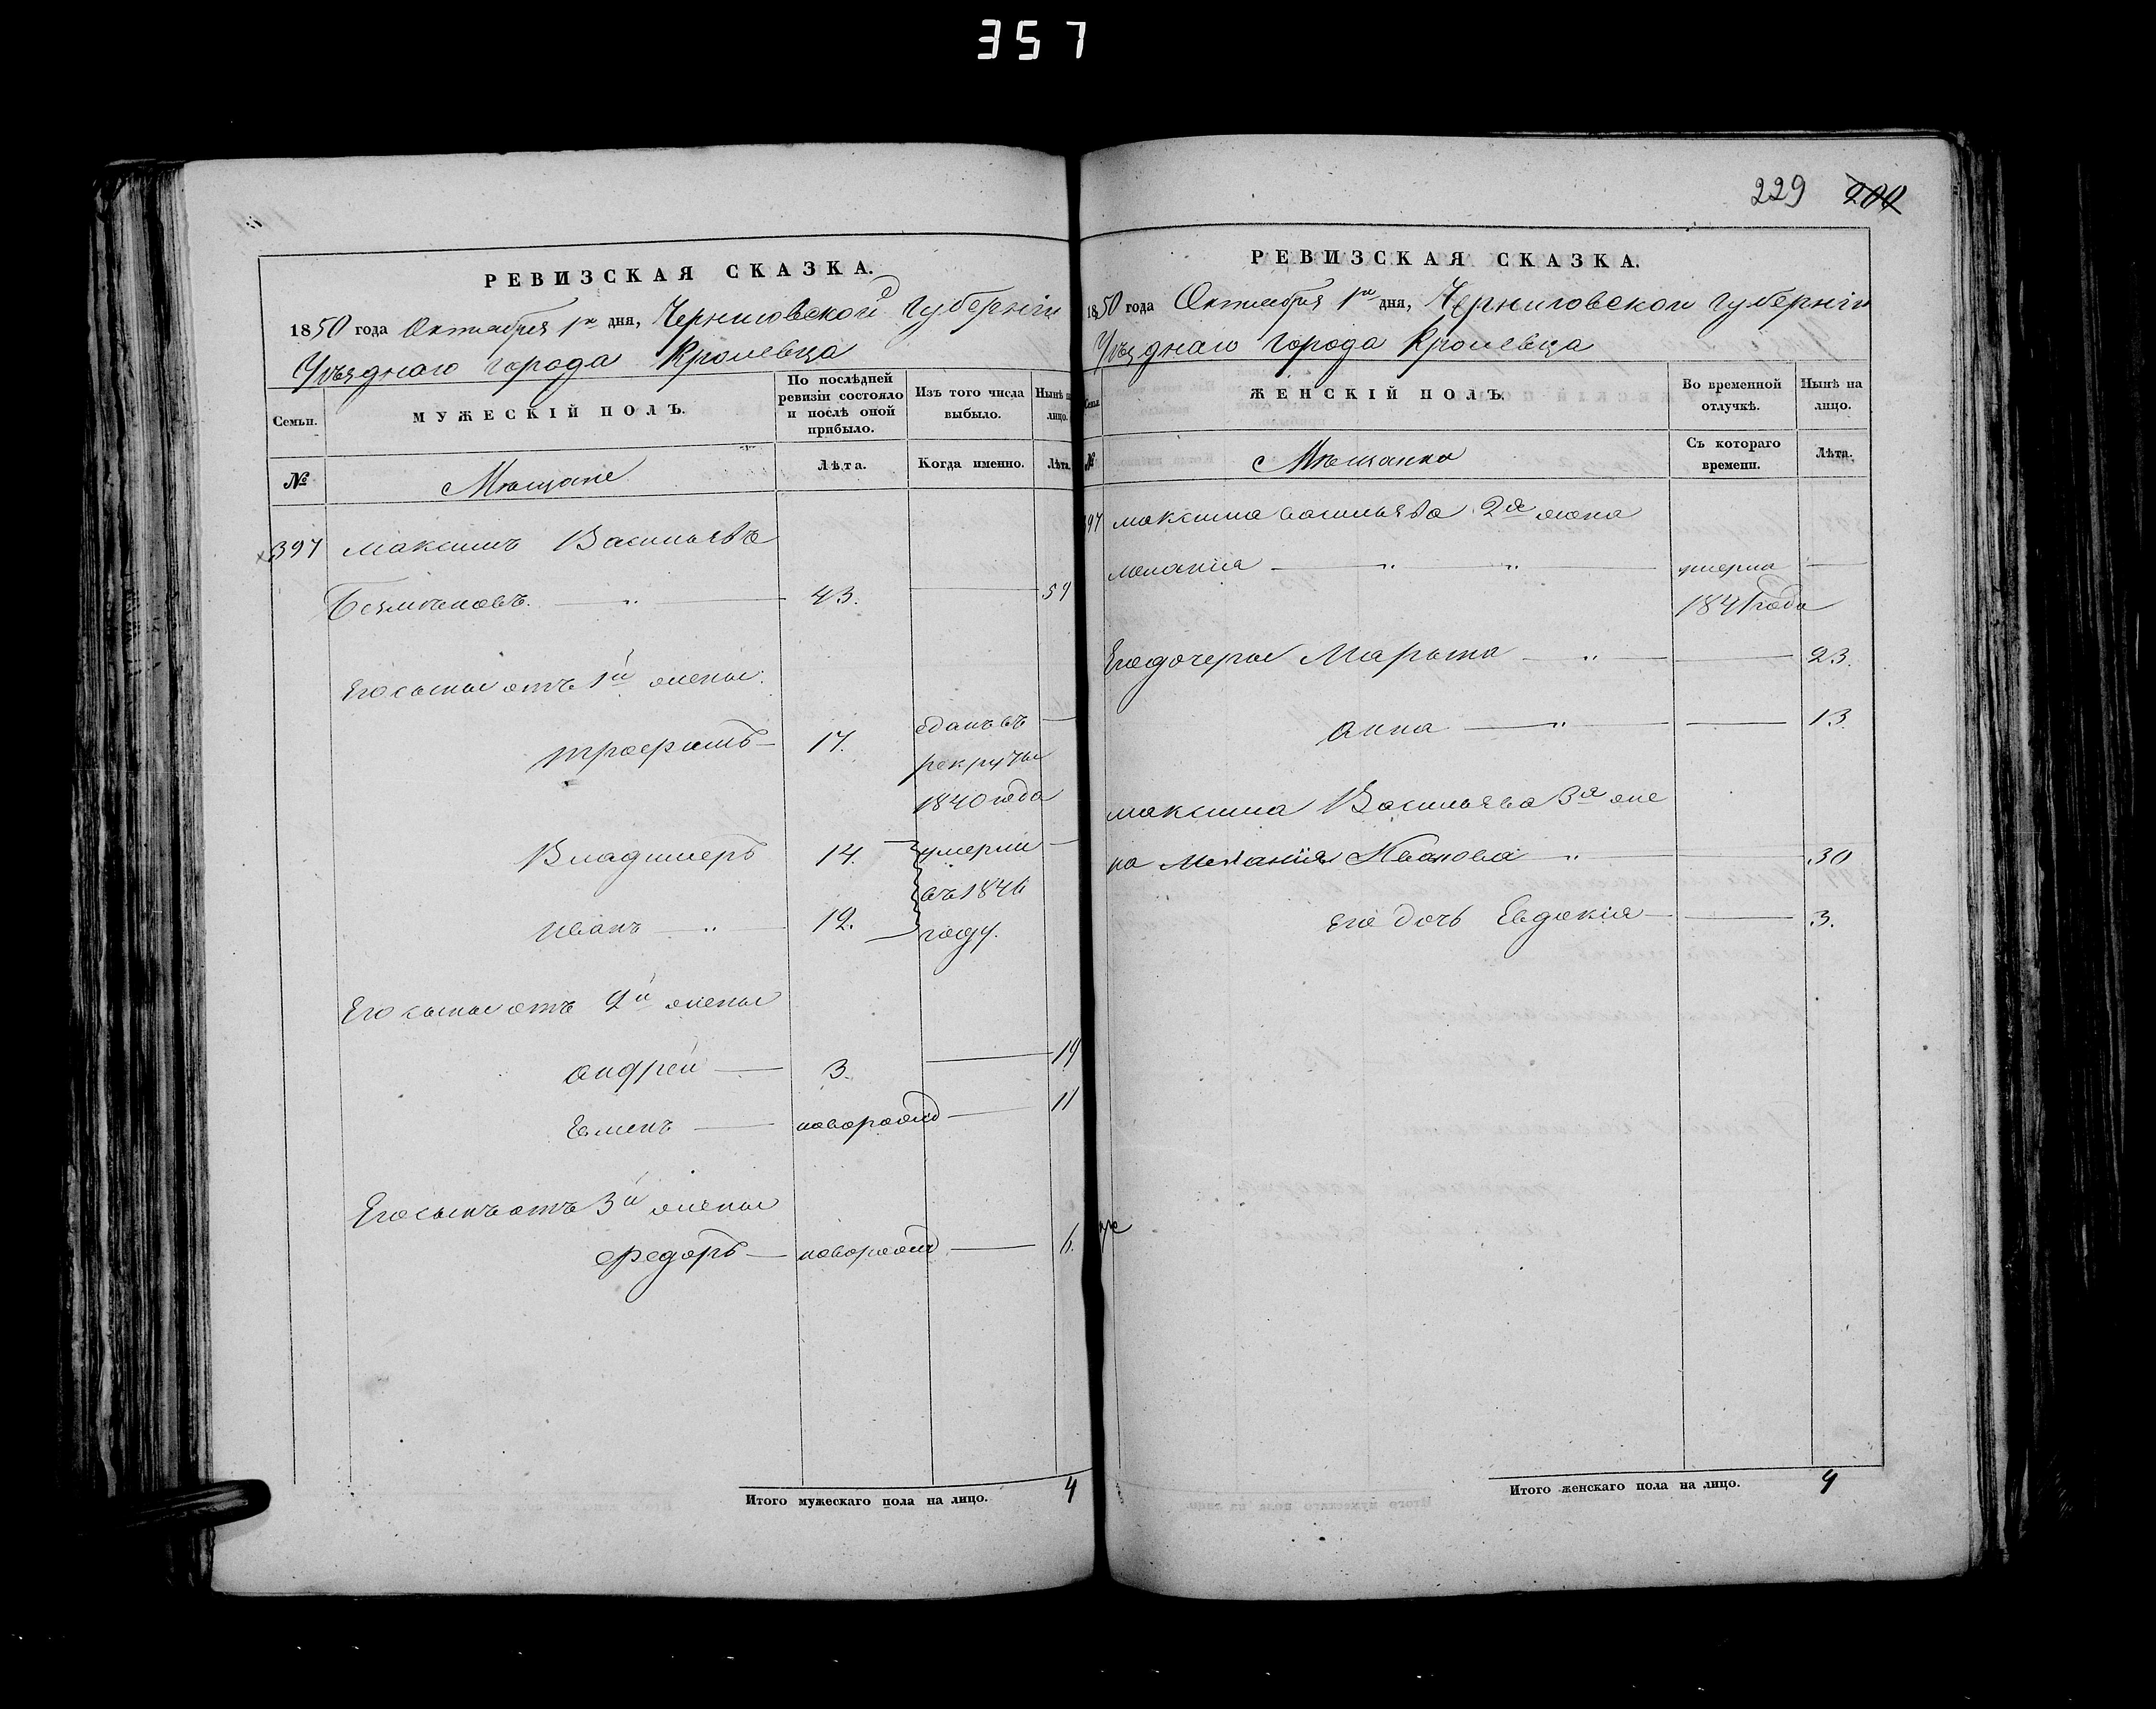 357
РЕВИЗСКАЯ СКАЗКА.
1850 года Октября 1го дня, Черниговской Губерніи
Уѣзднаго города Кролевца
Семьи.
МУЖЕСКІЙ ПОЛЪ.
По послѣдней ревизіи состояло и послѣ оной прибыло.
Изъ того числа выбыло.
Нынѣ на лицо.
№
Мѣщане
Лѣта.
Когда именно.
Лѣта.
397 Максимъ Васильевъ
43. 54
Его сыны отъ 1й жены.
Трофимъ 17. сданъ въ
рекруты
1840 года
Владимеръ 14. умерли
въ 1846
Иванъ 12. году.
Его сыны отъ 2й жены
Андрей 3. 14
Евменъ новорожд 11
Его сынъ отъ 3й жены
Федоръ новорожд 6.
Итого мужескаго пола на лицо. 4
229 200
РЕВИЗСКАЯ СКАЗКА.
1850 года Октября 1го дня, Черниговской Губерніи
Уѣзднаго города Кролевца
Семьи
ЖЕНСКІЙ ПОЛЪ.
Во временной отлучкѣ.
Нынѣ на лицо.
№
Мѣщанка
Съ котораго времени.
Лѣта.
397 Максима Васильева 2я жена
Меланія умерла
1841 года
Его дочеры Марьяна 23.
Анна 13.
Максима Васильева 3я же
на Меланія Иванова 30
Его дочь Евдокія 3.
Итого женскаго пола на лицо. 4